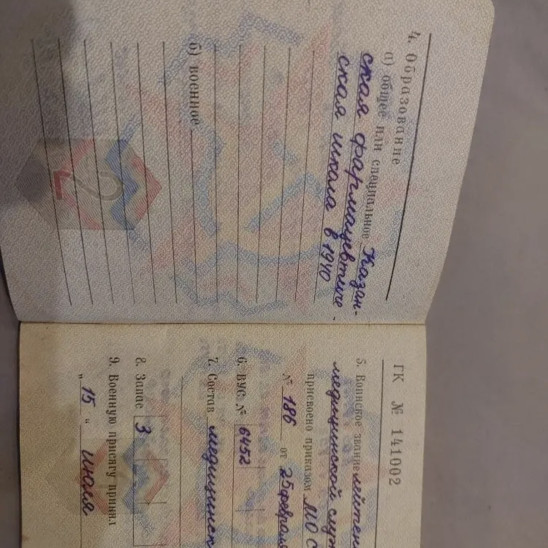 4. Образование
а) общее или специальное Казан-
ская фармацевтиче-
ская школа в 1940
б) военное
2
ГК № 141002
5. Воинское звание лейтен
медицинской служ
присвоено приказом МО С
№ 186 от 25 февраля
6. ВУС: № 6452
7. Состав медицинск
8. Запас 3
9. Военную присягу принял
„ 15 “ июля